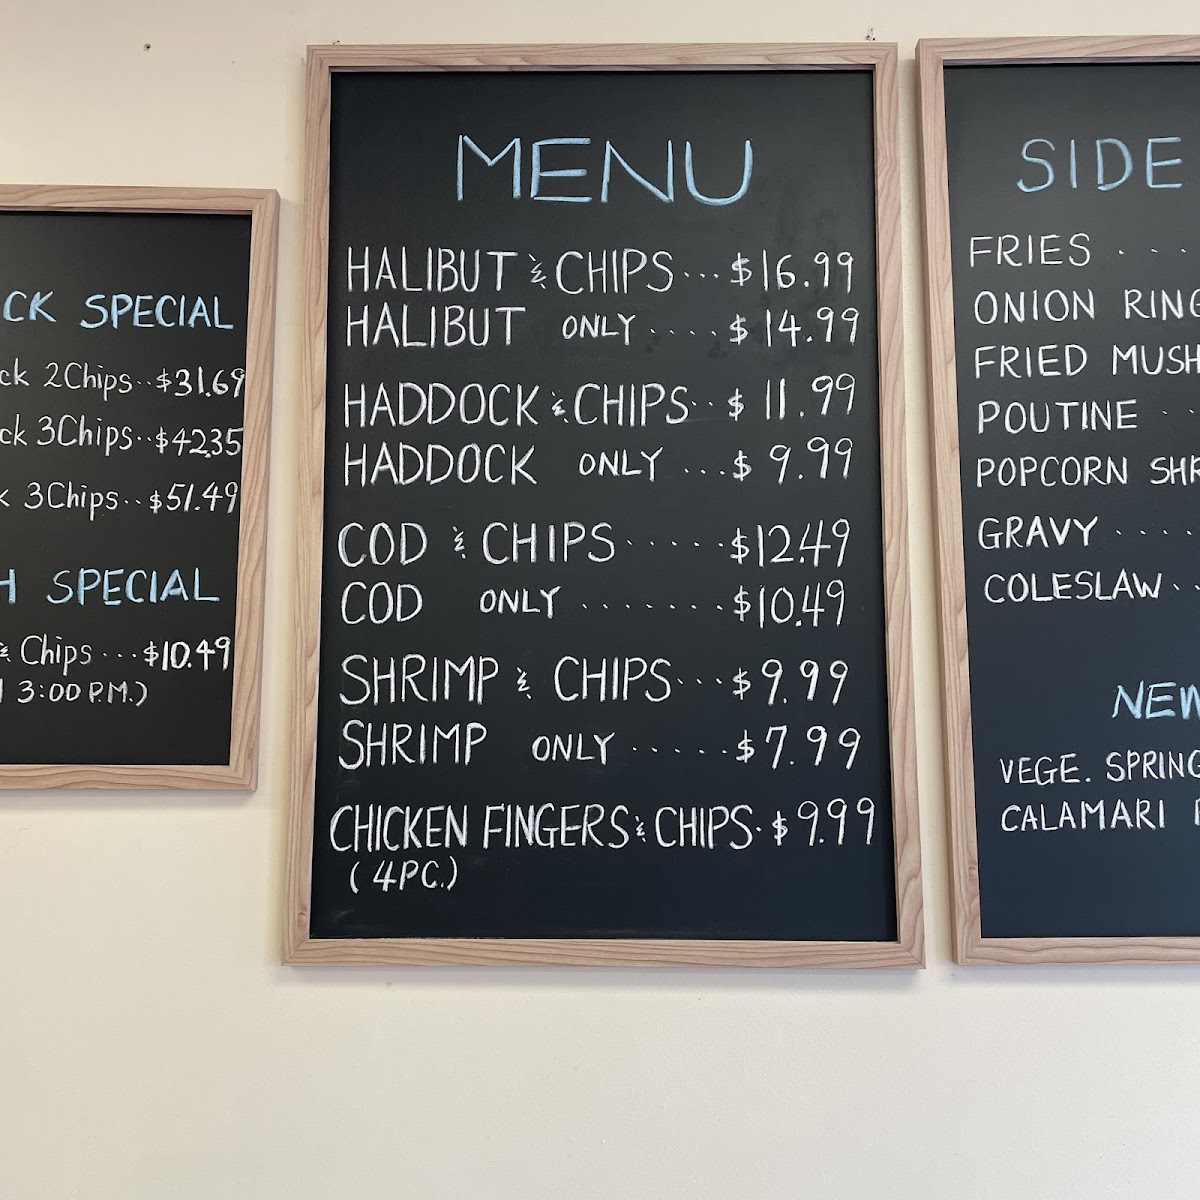 CK SPECIAL
ck 2Chips..$31.69
ck 3Chips..$42.35
k 3Chips..$51.49
H SPECIAL
& Chips...$10.49
3:00 P.M.)
MENU
HALIBUT & CHIPS...$16.99
HALIBUT ONLY....$14.99
HADDOCK & CHIPS..$11.99
HADDOCK ONLY ...$9.99
COD & CHIPS.....$12.49
COD ONLY .......$10.49
SHRIMP & CHIPS...$9.99
SHRIMP ONLY .....$7.99
CHICKEN FINGERS & CHIPS.$9.99
(4PC.)
SIDE
FRIES ...
ONION RING
FRIED MUSH
POUTINE ..
POPCORN SHR
GRAVY ....
COLESLAW..
NEW
VEGE. SPRING
CALAMARI